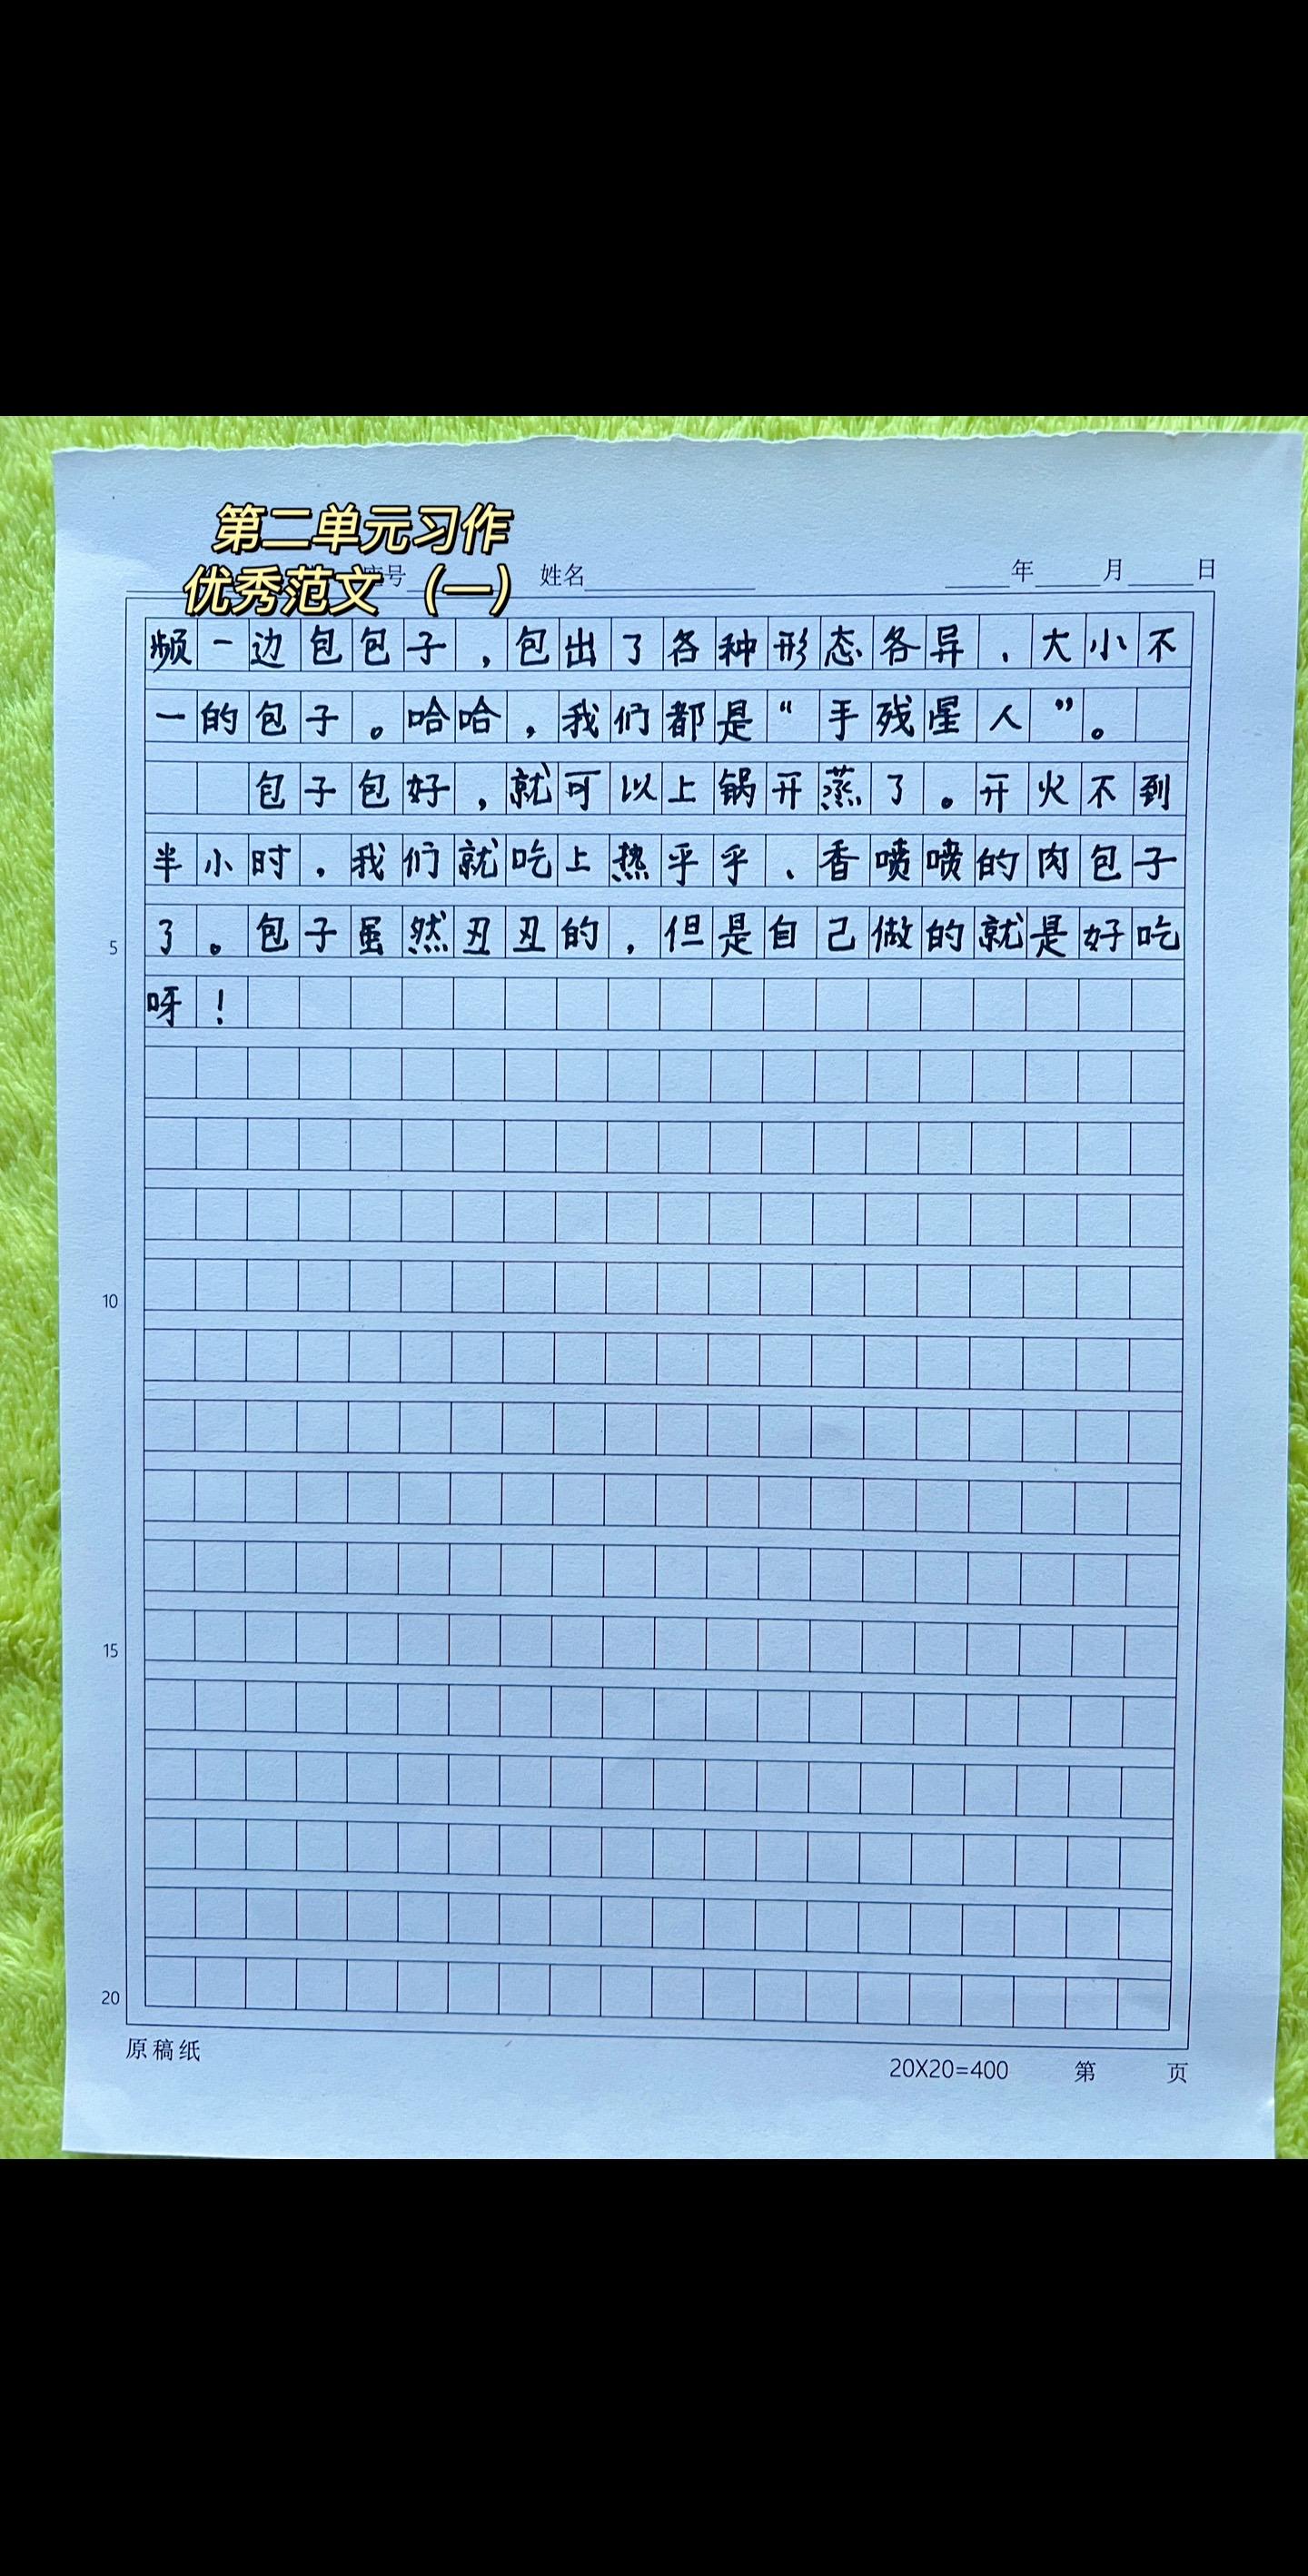 第二单元习作
优秀范文（一）
号 姓名 年 月 日
频一边包包子，包出了各种形态各异、大小不
一的包子。哈哈，我们都是“手残星人”。
包子包好，就可以上锅开蒸了。开火不到
半小时，我们就吃上热乎乎、香喷喷的肉包子
了。包子虽然丑丑的，但是自己做的就是好吃
5
呀！
10
15
20
原稿纸
20X20=400 第 页